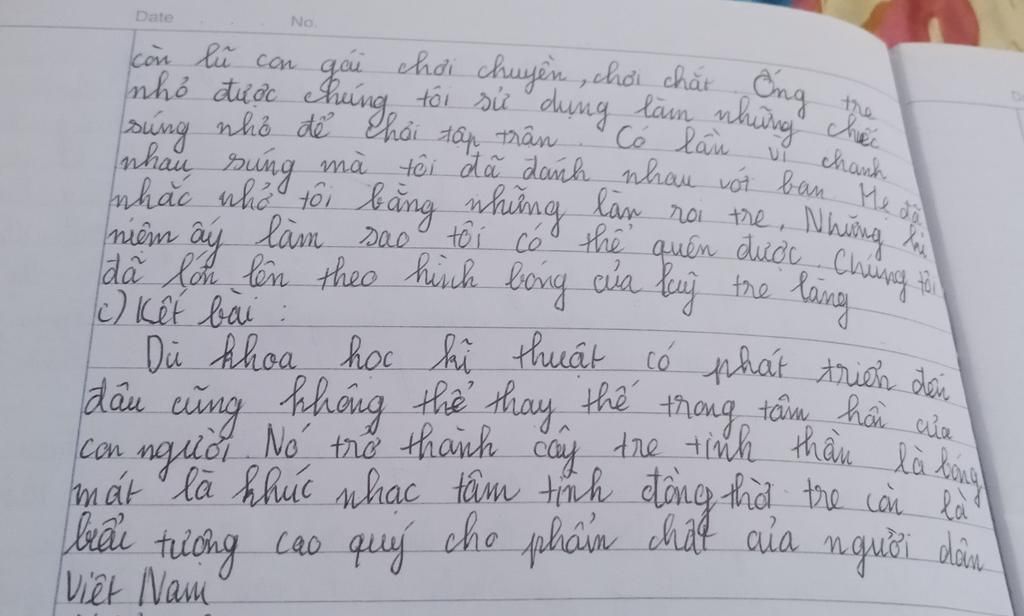 Date No.
còn lũ con gái chơi chuyền, chơi chắt. Ống tre
nhỏ được chúng tôi sử dụng làm những chiếc
súng nhỏ để chơi tập trận. Có lần vì chanh
nhau súng mà tôi đã đánh nhau với bạn. Mẹ đã
nhắc nhở tôi bằng những lằn roi tre. Những kỉ
niệm ấy làm sao tôi có thể quên được. Chúng tôi
đã lớn lên theo hình bóng của luỹ tre làng
c) Kết bài :
Dù khoa học kĩ thuật có phát triển đến
đâu cũng không thể thay thế trong tâm hồn của
con người. Nó trở thành cây tre tinh thần là bóng
mát là khúc nhạc tâm tình đồng thời tre còn là
biểu tượng cao quý cho phẩm chất của người dân
Việt Nam